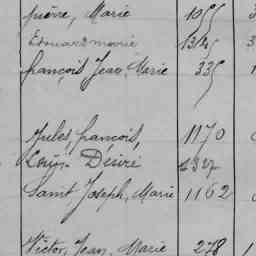 pierre, Marie 105
Edouard marie 1315
françois, Jean, Marie 335
Jules, françois, 1170
Louis Désiré
Saint Joseph, Marie 1162
Victor, Jean, Marie 278